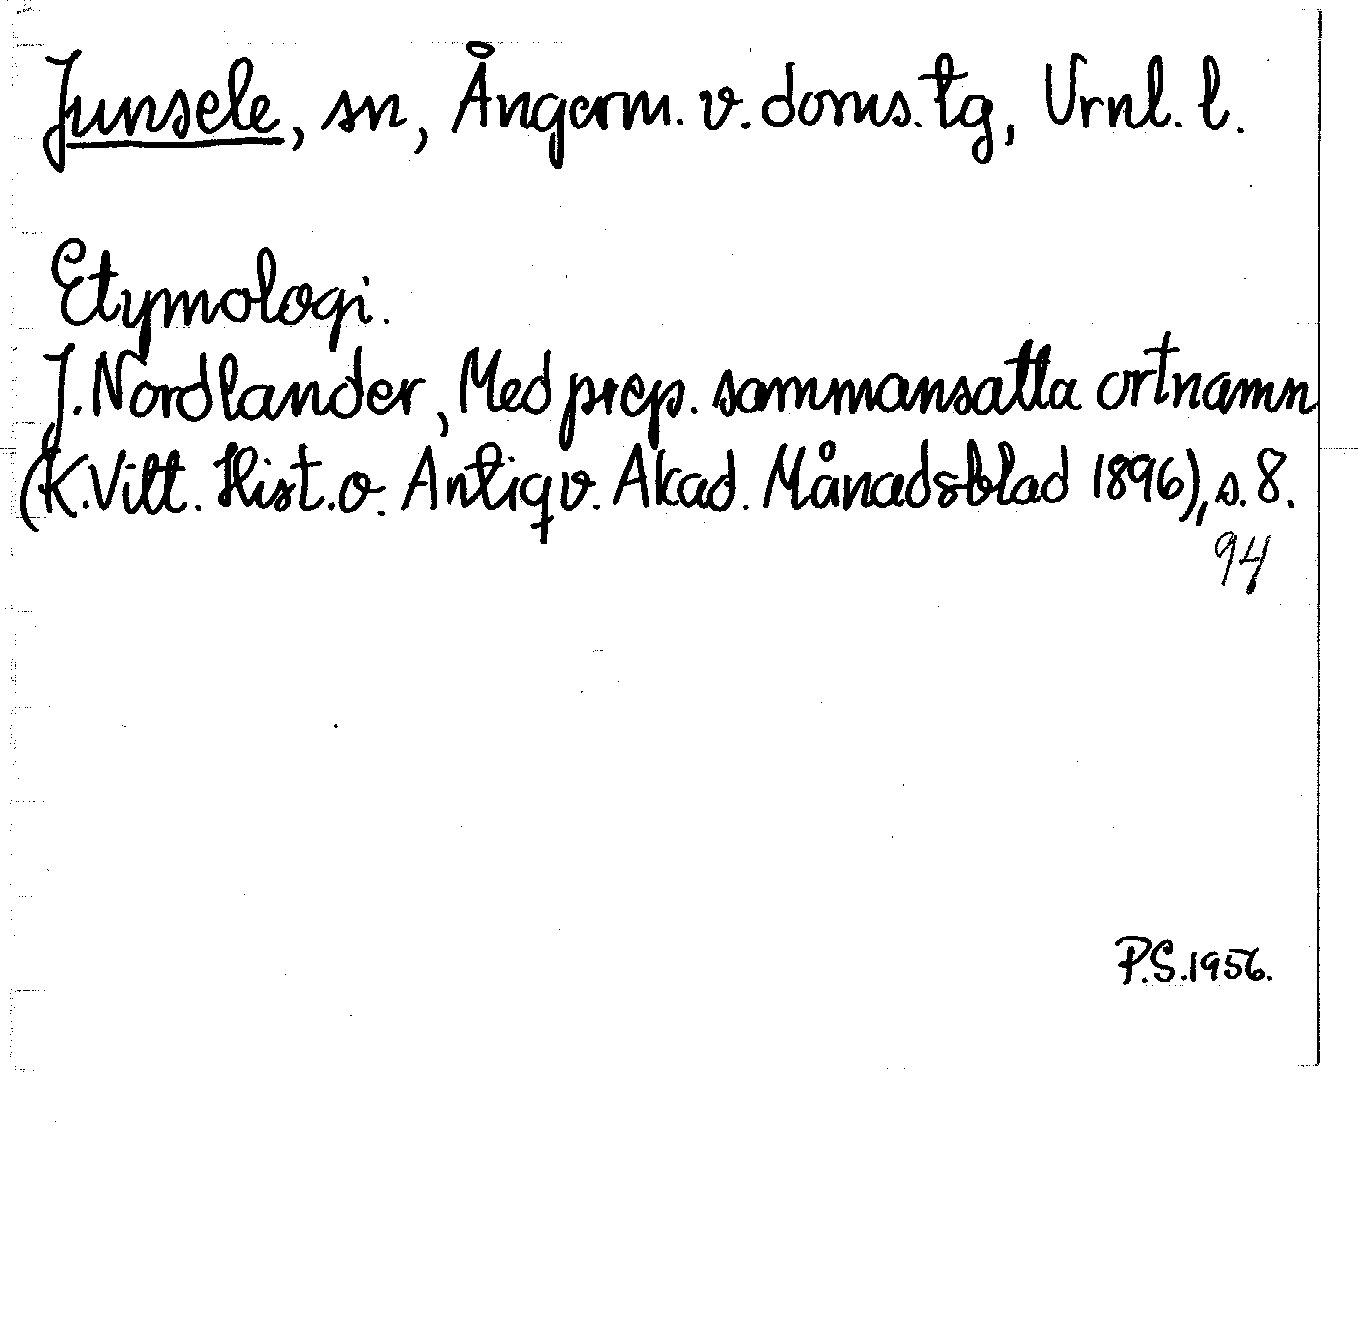 Junsele, sn, Ångerm. v. doms. tg, Vrnl. l.
Etymologi.
J. Nordlander, Med prep. sammansatta ortnamn
(K. Vitt. Hist. o. Antiqv. Akad. Månadsblad 1896), s. 8.
94
P.S. 1956.